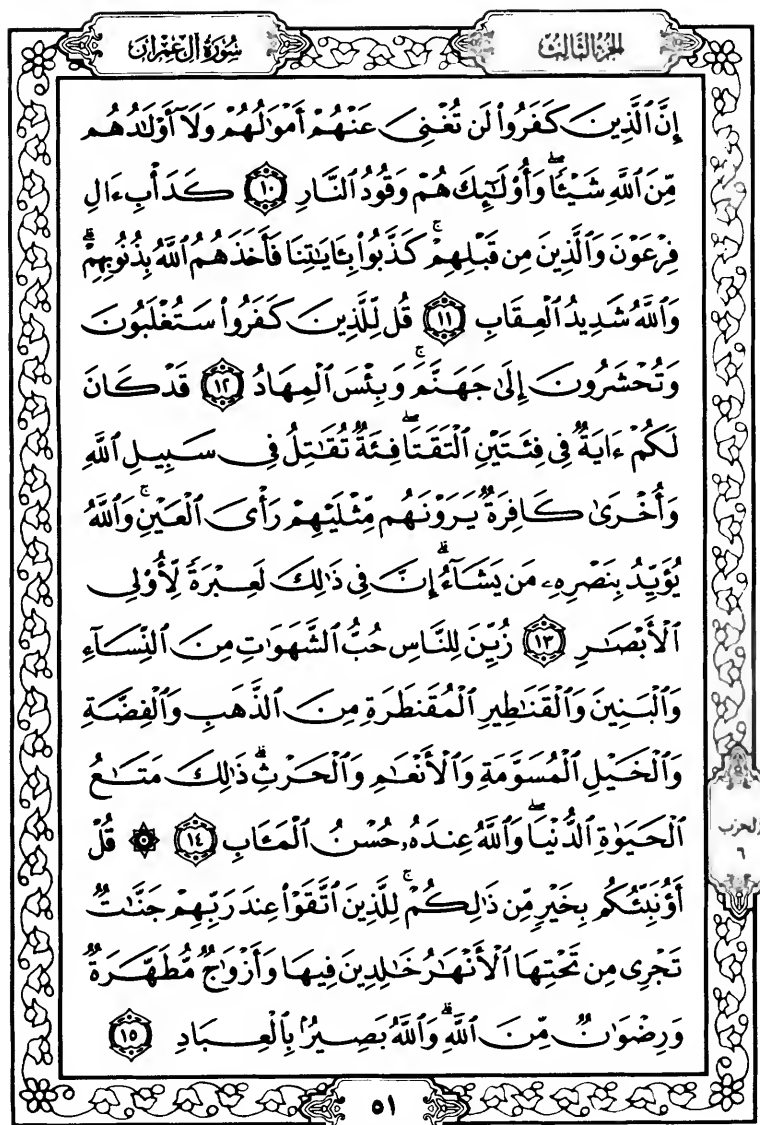 سُورَةُ آلِ عِمْرَانَ
الجُزْءُ الثَّالِثُ
إِنَّ ٱلَّذِينَ كَفَرُوا۟ لَن تُغْنِىَ عَنْهُمْ أَمْوَٰلُهُمْ وَلَآ أَوْلَٰدُهُم
مِّنَ ٱللَّهِ شَيْـًٔاۖ وَأُو۟لَٰٓئِكَ هُمْ وَقُودُ ٱلنَّارِ ١٠ كَدَأْبِ ءَالِ
فِرْعَوْنَ وَٱلَّذِينَ مِن قَبْلِهِمْۚ كَذَّبُوا۟ بِـَٔايَٰتِنَا فَأَخَذَهُمُ ٱللَّهُ بِذُنُوبِهِمْۗ
وَٱللَّهُ شَدِيدُ ٱلْعِقَابِ ١١ قُل لِّلَّذِينَ كَفَرُوا۟ سَتُغْلَبُونَ
وَتُحْشَرُونَ إِلَىٰ جَهَنَّمَۚ وَبِئْسَ ٱلْمِهَادُ ١٢ قَدْ كَانَ
لَكُمْ ءَايَةٌ فِى فِئَتَيْنِ ٱلْتَقَتَاۖ فِئَةٌ تُقَٰتِلُ فِى سَبِيلِ ٱللَّهِ
وَأُخْرَىٰ كَافِرَةٌ يَرَوْنَهُم مِّثْلَيْهِمْ رَأْىَ ٱلْعَيْنِۚ وَٱللَّهُ
يُؤَيِّدُ بِنَصْرِهِۦ مَن يَشَآءُۗ إِنَّ فِى ذَٰلِكَ لَعِبْرَةً لِّأُو۟لِى
ٱلْأَبْصَٰرِ ١٣ زُيِّنَ لِلنَّاسِ حُبُّ ٱلشَّهَوَٰتِ مِنَ ٱلنِّسَآءِ
وَٱلْبَنِينَ وَٱلْقَنَٰطِيرِ ٱلْمُقَنطَرَةِ مِنَ ٱلذَّهَبِ وَٱلْفِضَّةِ
وَٱلْخَيْلِ ٱلْمُسَوَّمَةِ وَٱلْأَنْعَٰمِ وَٱلْحَرْثِۗ ذَٰلِكَ مَتَٰعُ
ٱلْحَيَوٰةِ ٱلدُّنْيَاۖ وَٱللَّهُ عِندَهُۥ حُسْنُ ٱلْمَـَٔابِ ١٤ ۞ قُلْ
أَؤُنَبِّئُكُم بِخَيْرٍ مِّن ذَٰلِكُمْۚ لِلَّذِينَ ٱتَّقَوْا۟ عِندَ رَبِّهِمْ جَنَّٰتٌ
تَجْرِى مِن تَحْتِهَا ٱلْأَنْهَٰرُ خَٰلِدِينَ فِيهَا وَأَزْوَٰجٌ مُّطَهَّرَةٌ
وَرِضْوَٰنٌ مِّنَ ٱللَّهِۗ وَٱللَّهُ بَصِيرٌۢ بِٱلْعِبَادِ ١٥
الحزب
٦
٥١